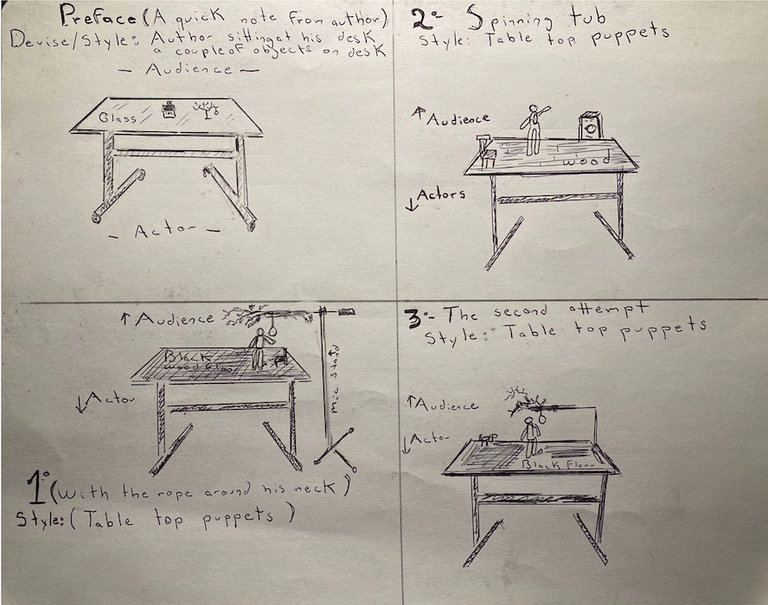 Preface (A quick note from author)
Devise/Style: Author sitting at his desk
a couple of objects on desk
— Audience —
Glass
— Actor —
2- Spinning tub
Style: Table top puppets
↑ Audience
wood
↓ Actors
↑ Audience
Black
wood floor
↓ Actor
Mic Stand
1- (With the rope around his neck)
Style: (Table top puppets)
3- The second attempt
Style: Table top puppets
↑ Audience
↓ Actor
Black Floor